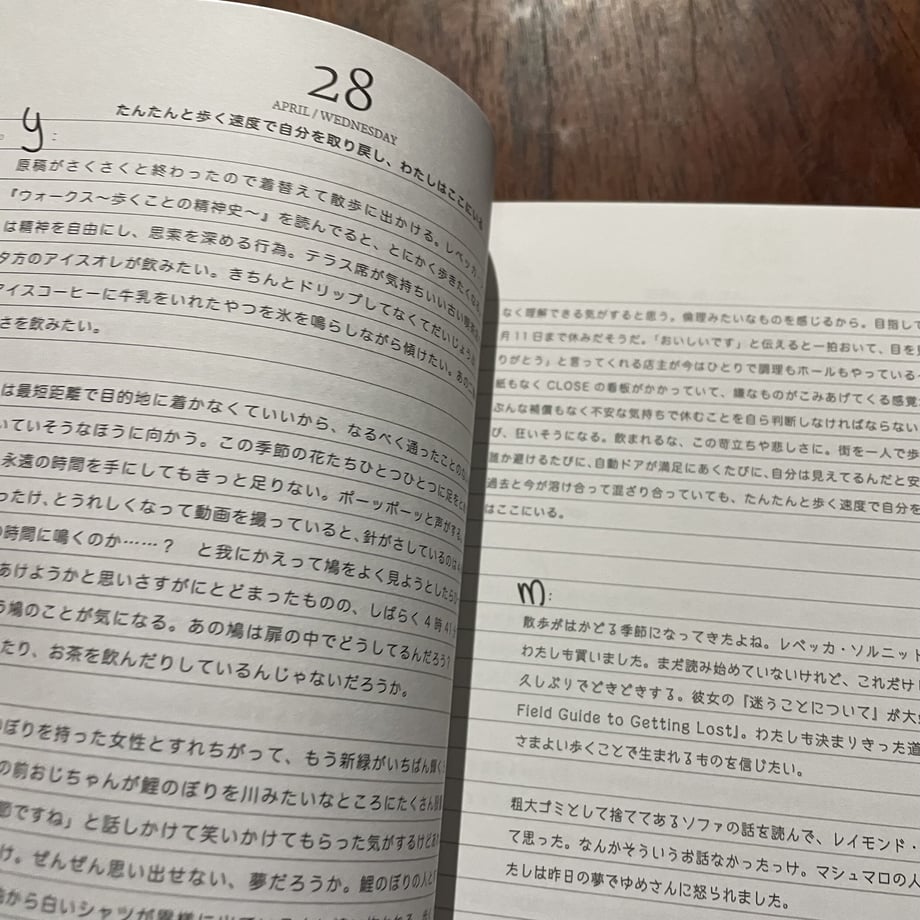 28
APRIL / WEDNESDAY
たんたんと歩く速度で自分を取り戻し、わたしはここにいる
y:
原稿がさくさくと終わったので着替えて散歩に出かける。レベッカ
『ウォークス〜歩くことの精神史〜』を読んでると、とにかく歩きたくなる。
は精神を自由にし、思索を深める行為。テラス席が気持ちいい古い喫茶店
夕方のアイスオレが飲みたい。きちんとドリップしてなくてだいじょうぶ
アイスコーヒーに牛乳をいれたやつを氷を鳴らしながら傾けたい。あの
さを飲みたい。
は最短距離で目的地に着かなくていいから、なるべく通ったことのな
いていそうなほうに向かう。この季節の花たちひとつひとつに足をとめ
永遠の時間を手にしてもきっと足りない。ポーッポーッと声がする。
ったけ、とうれしくなって動画を撮っていると、針がさしているのは4
時間に鳴くのか……？ と我にかえって鳩をよく見ようとしたら
あけようかと思いさすがにとどまったものの、しばらく4時41
う鳩のことが気になる。あの鳩は扉の中でどうしてるんだろう？
たり、お茶を飲んだりしているんじゃないだろうか。
のぼりを持った女性とすれちがって、もう新緑がいちばん輝く
の前おじちゃんが鯉のぼりを川みたいなところにたくさん
節ですね」と話しかけて笑いかけてもらった気がするけど
け。ぜんぜん思い出せない、夢だろうか。鯉のぼりの人と
から白いシャツが異様に出ている
なく理解できる気がすると思う。倫理みたいなものを感じるから。目指して
月11日まで休みだそうだ。「おいしいです」と伝えると一拍おいて、目を
りがとう」と言ってくれる店主が今はひとりで調理もホールもやっている
紙もなく CLOSE の看板がかかっていて、嫌なものがこみあげてくる感覚
ぶんな補償もなく不安な気持ちで休むことを自ら判断しなければならない
び、狂いそうになる。飲まれるな、この苛立ちや悲しさに。街を一人で歩
誰か避けるたびに、自動ドアが満足にあくたびに、自分は見えてるんだと安
過去と今が溶け合って混ざり合っていても、たんたんと歩く速度で自分を
はここにいる。
m:
散歩がはかどる季節になってきたよね。レベッカ・ソルニット
わたしも買いました。まだ読み始めていないけれど、これだけ
久しぶりでどきどきする。彼女の『迷うことについて』が大
Field Guide to Getting Lost』。わたしも決まりきった道
さまよい歩くことで生まれるものを信じたい。
粗大ゴミとして捨ててあるソファの話を読んで、レイモンド・
て思った。なんかそういうお話なかったっけ。マシュマロの人
たしは昨日の夢でゆめさんに怒られました。